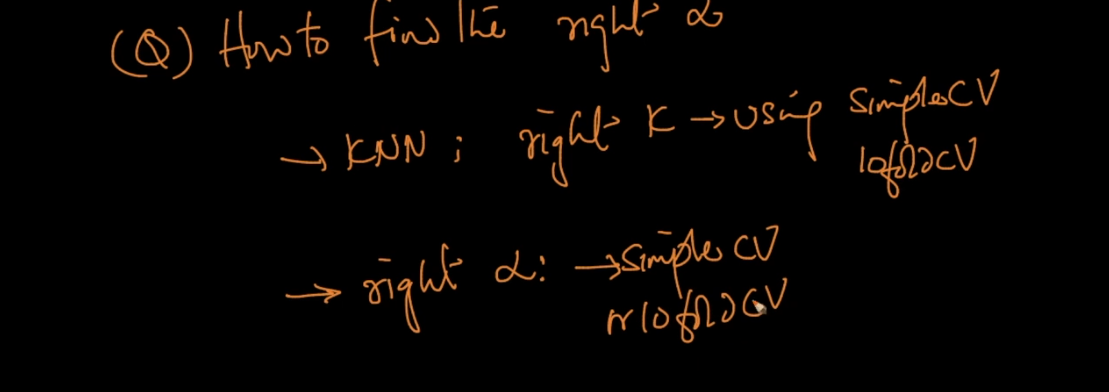 (Q) How to find the right α
→ KNN ; right K → using simple CV
10 fold CV
→ right α: → simple CV
or 10 fold CV